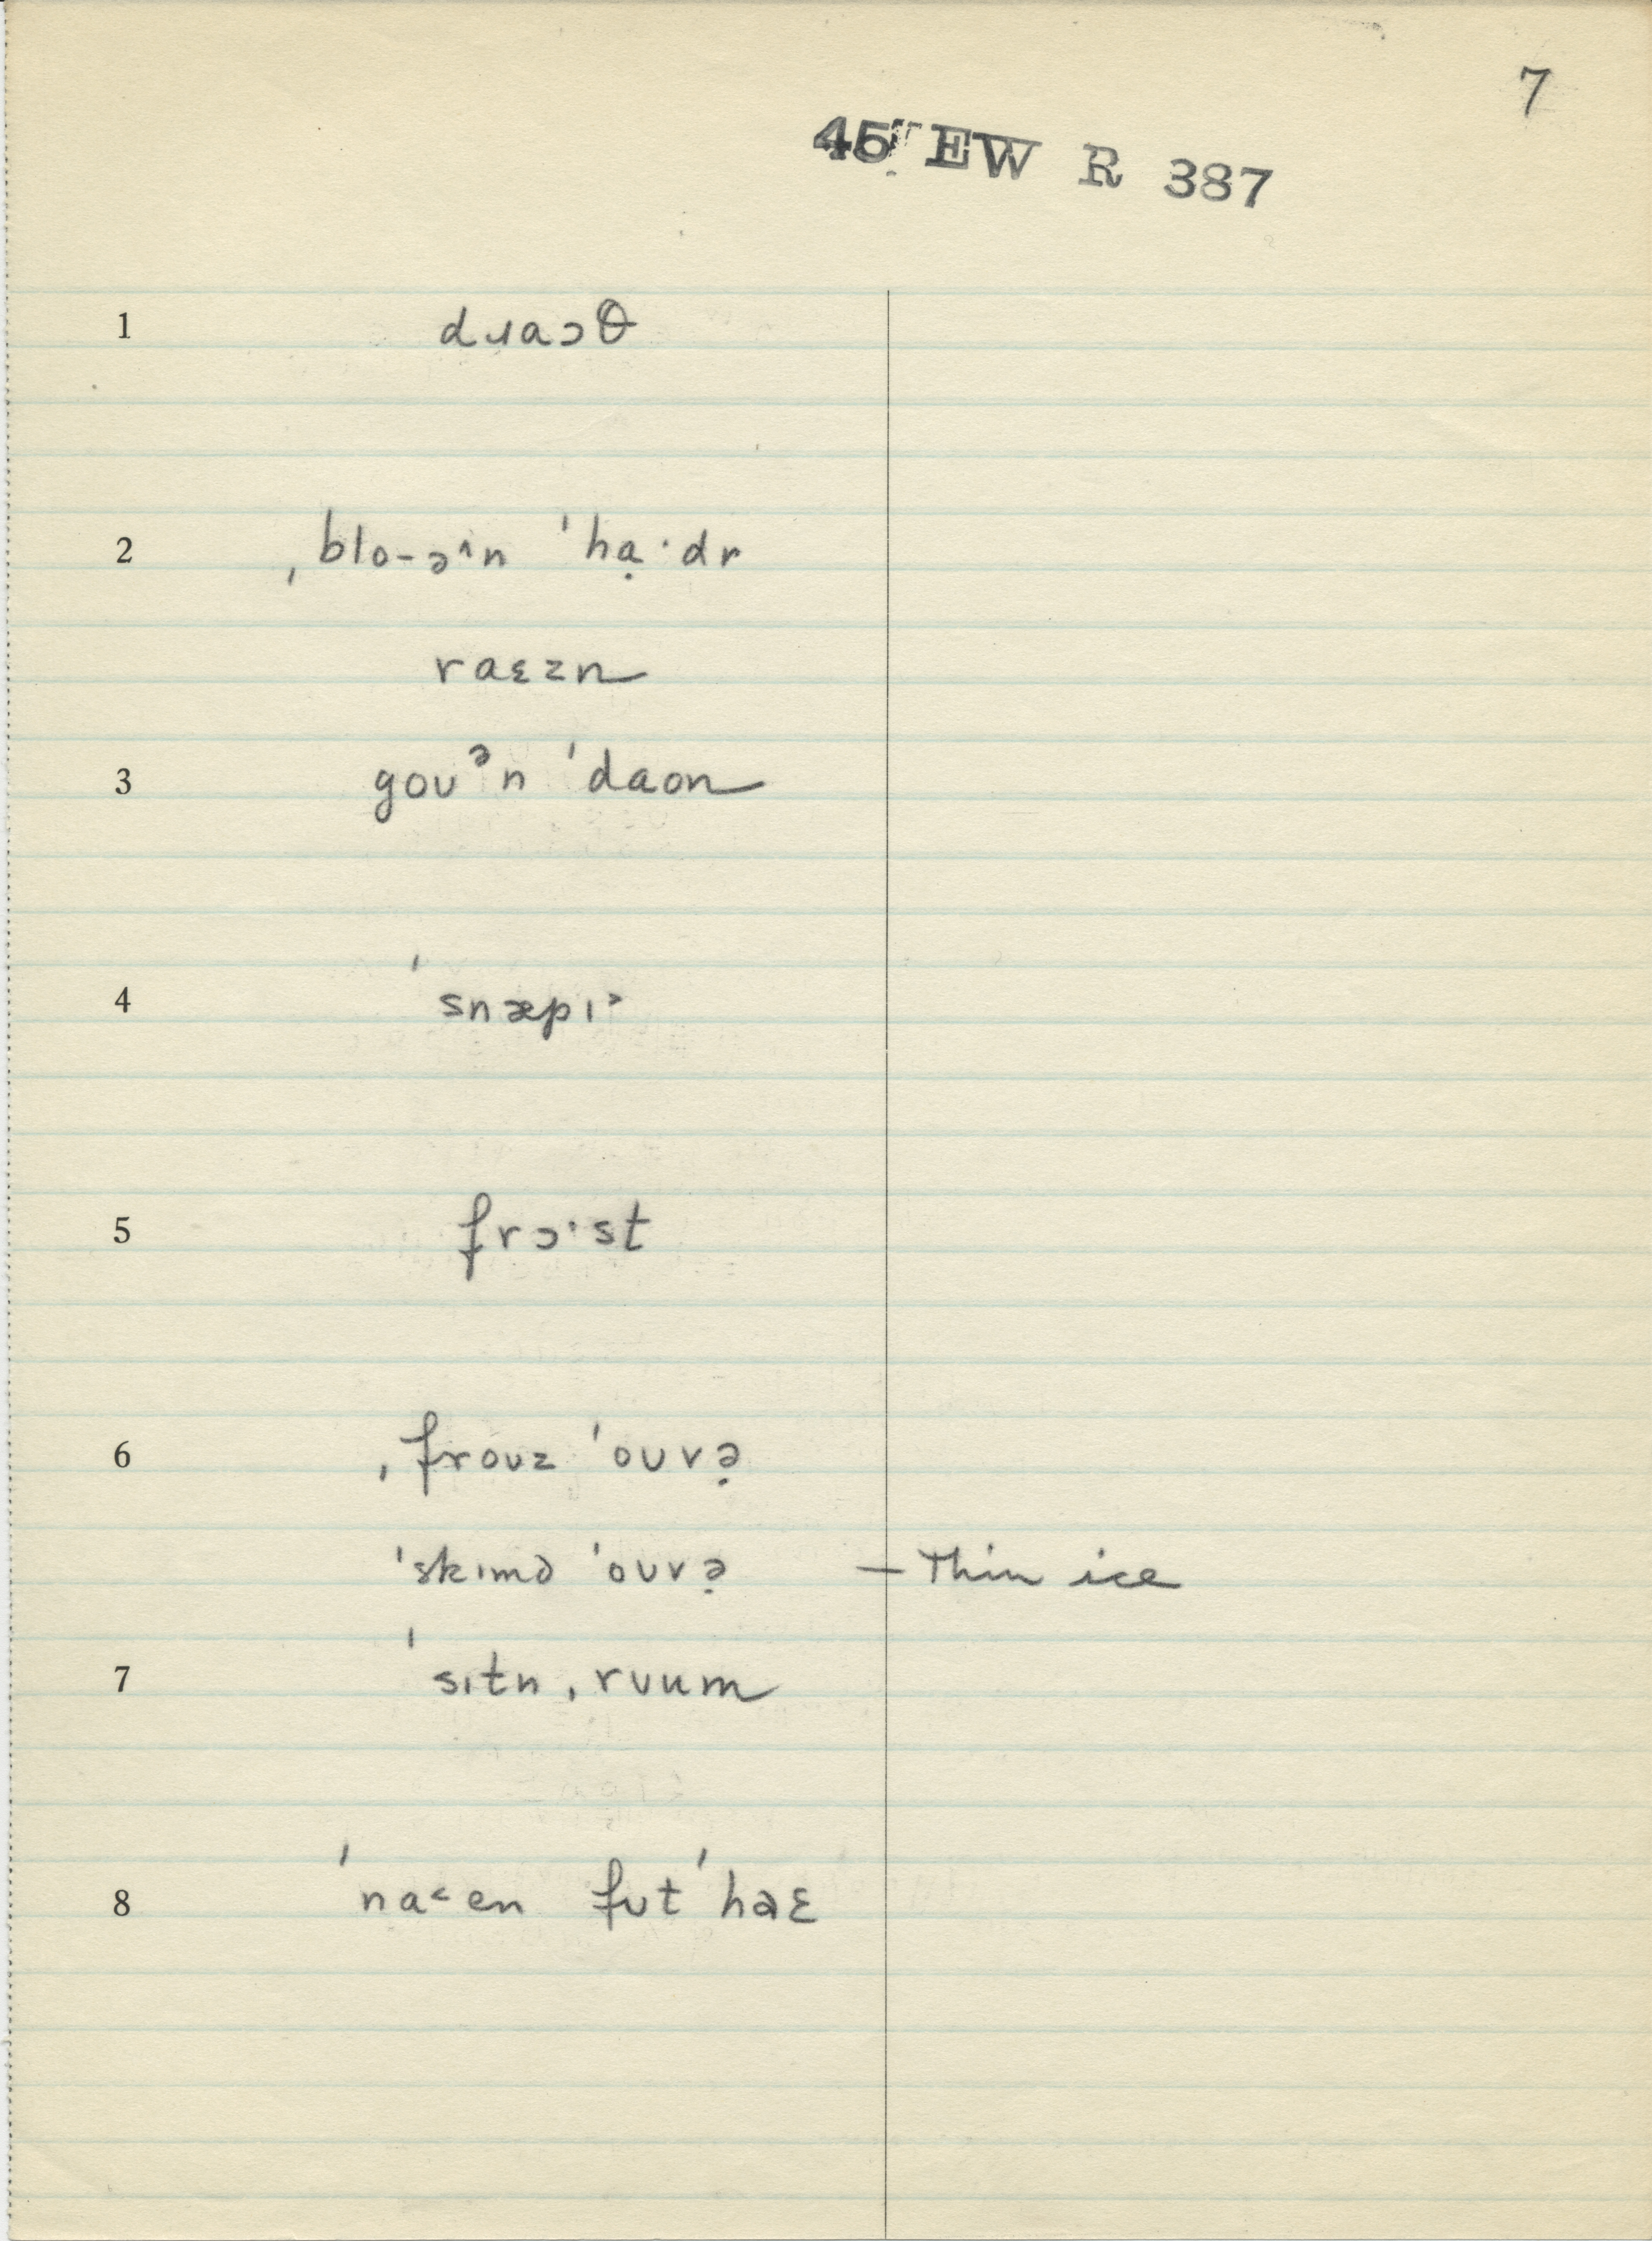 7
45 EW R 387
1 dɹaɔθ
2 ˌblo-əˆn ˈhạ·dr
raɛzn
3 goʊᵊn ˈdaon
4 ˈsnæpɪ˃
5 frɔ·st
6 ˌfroʊz ˈoʊvə̣
ˈskɪmd ˈoʊvə̣ – Thin ice
7 ˈsɪtn ˌrʊum
8 ˈna˂en fʊt ˈhaɛ